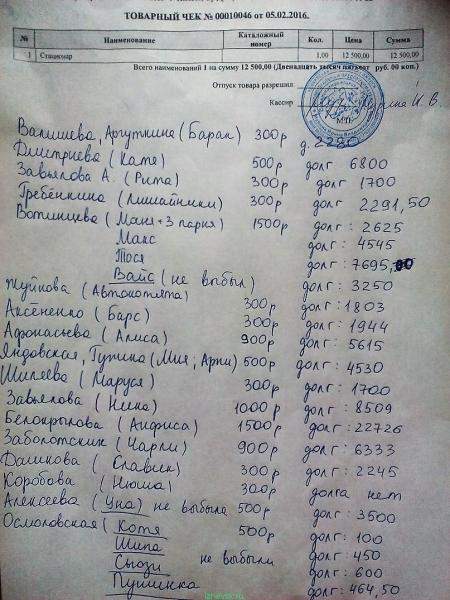 ТОВАРНЫЙ ЧЕК № 00010046 от 05.02.2016.
№ Наименование Каталожный номер Кол. Цена Сумма
1 Стационар 1,00 12 500,00 12 500,00
Всего наименований 1 на сумму 12 500,00 (Двенадцать тысяч пятьсот руб. 00 коп.)
Отпуск товара разрешил
Кассир И. В.
М.П.
Валишева, Аргуткина (Баран) 300р д. 2280
Дмитриева (Катя) 500р долг 6800
Завьялова А. (Рита) 300р долг 1700
Гребёнкина (Лишайники) 300р долг 2291,50
Вотинцева (Маня + 3 парня) 1500р долг: 2625
Макс долг: 4545
Тося долг: 7695,00
Вайс (не выбыл) долг: 3250
Жуйкова (Автокотята) 300р долг: 1803
Аксёненко (Барс) 300р долг: 1944
Афонасьева (Алиса) 900р долг: 5615
Яндовская, Гутина (Мия, Арни) 500р долг: 4530
Шилеева (Маруся) 300р долг: 1700
Завьялова (Ника) 1000р долг: 8509
Белокрылова (Анфиса) 1500р долг: 22726
Заболотских (Чарли) 900р долг: 6333
Дашкова (Славик) 300р долг: 2245
Коробова (Нюша) 300р долга нет
Алексеева (Уна) не выбыла 500р долг: 3500
Осмоловская (Котя 500р долг: 100
Шипа не выбыли долг: 450
Сьюзи долг: 600
Пушинка долг: 464,50